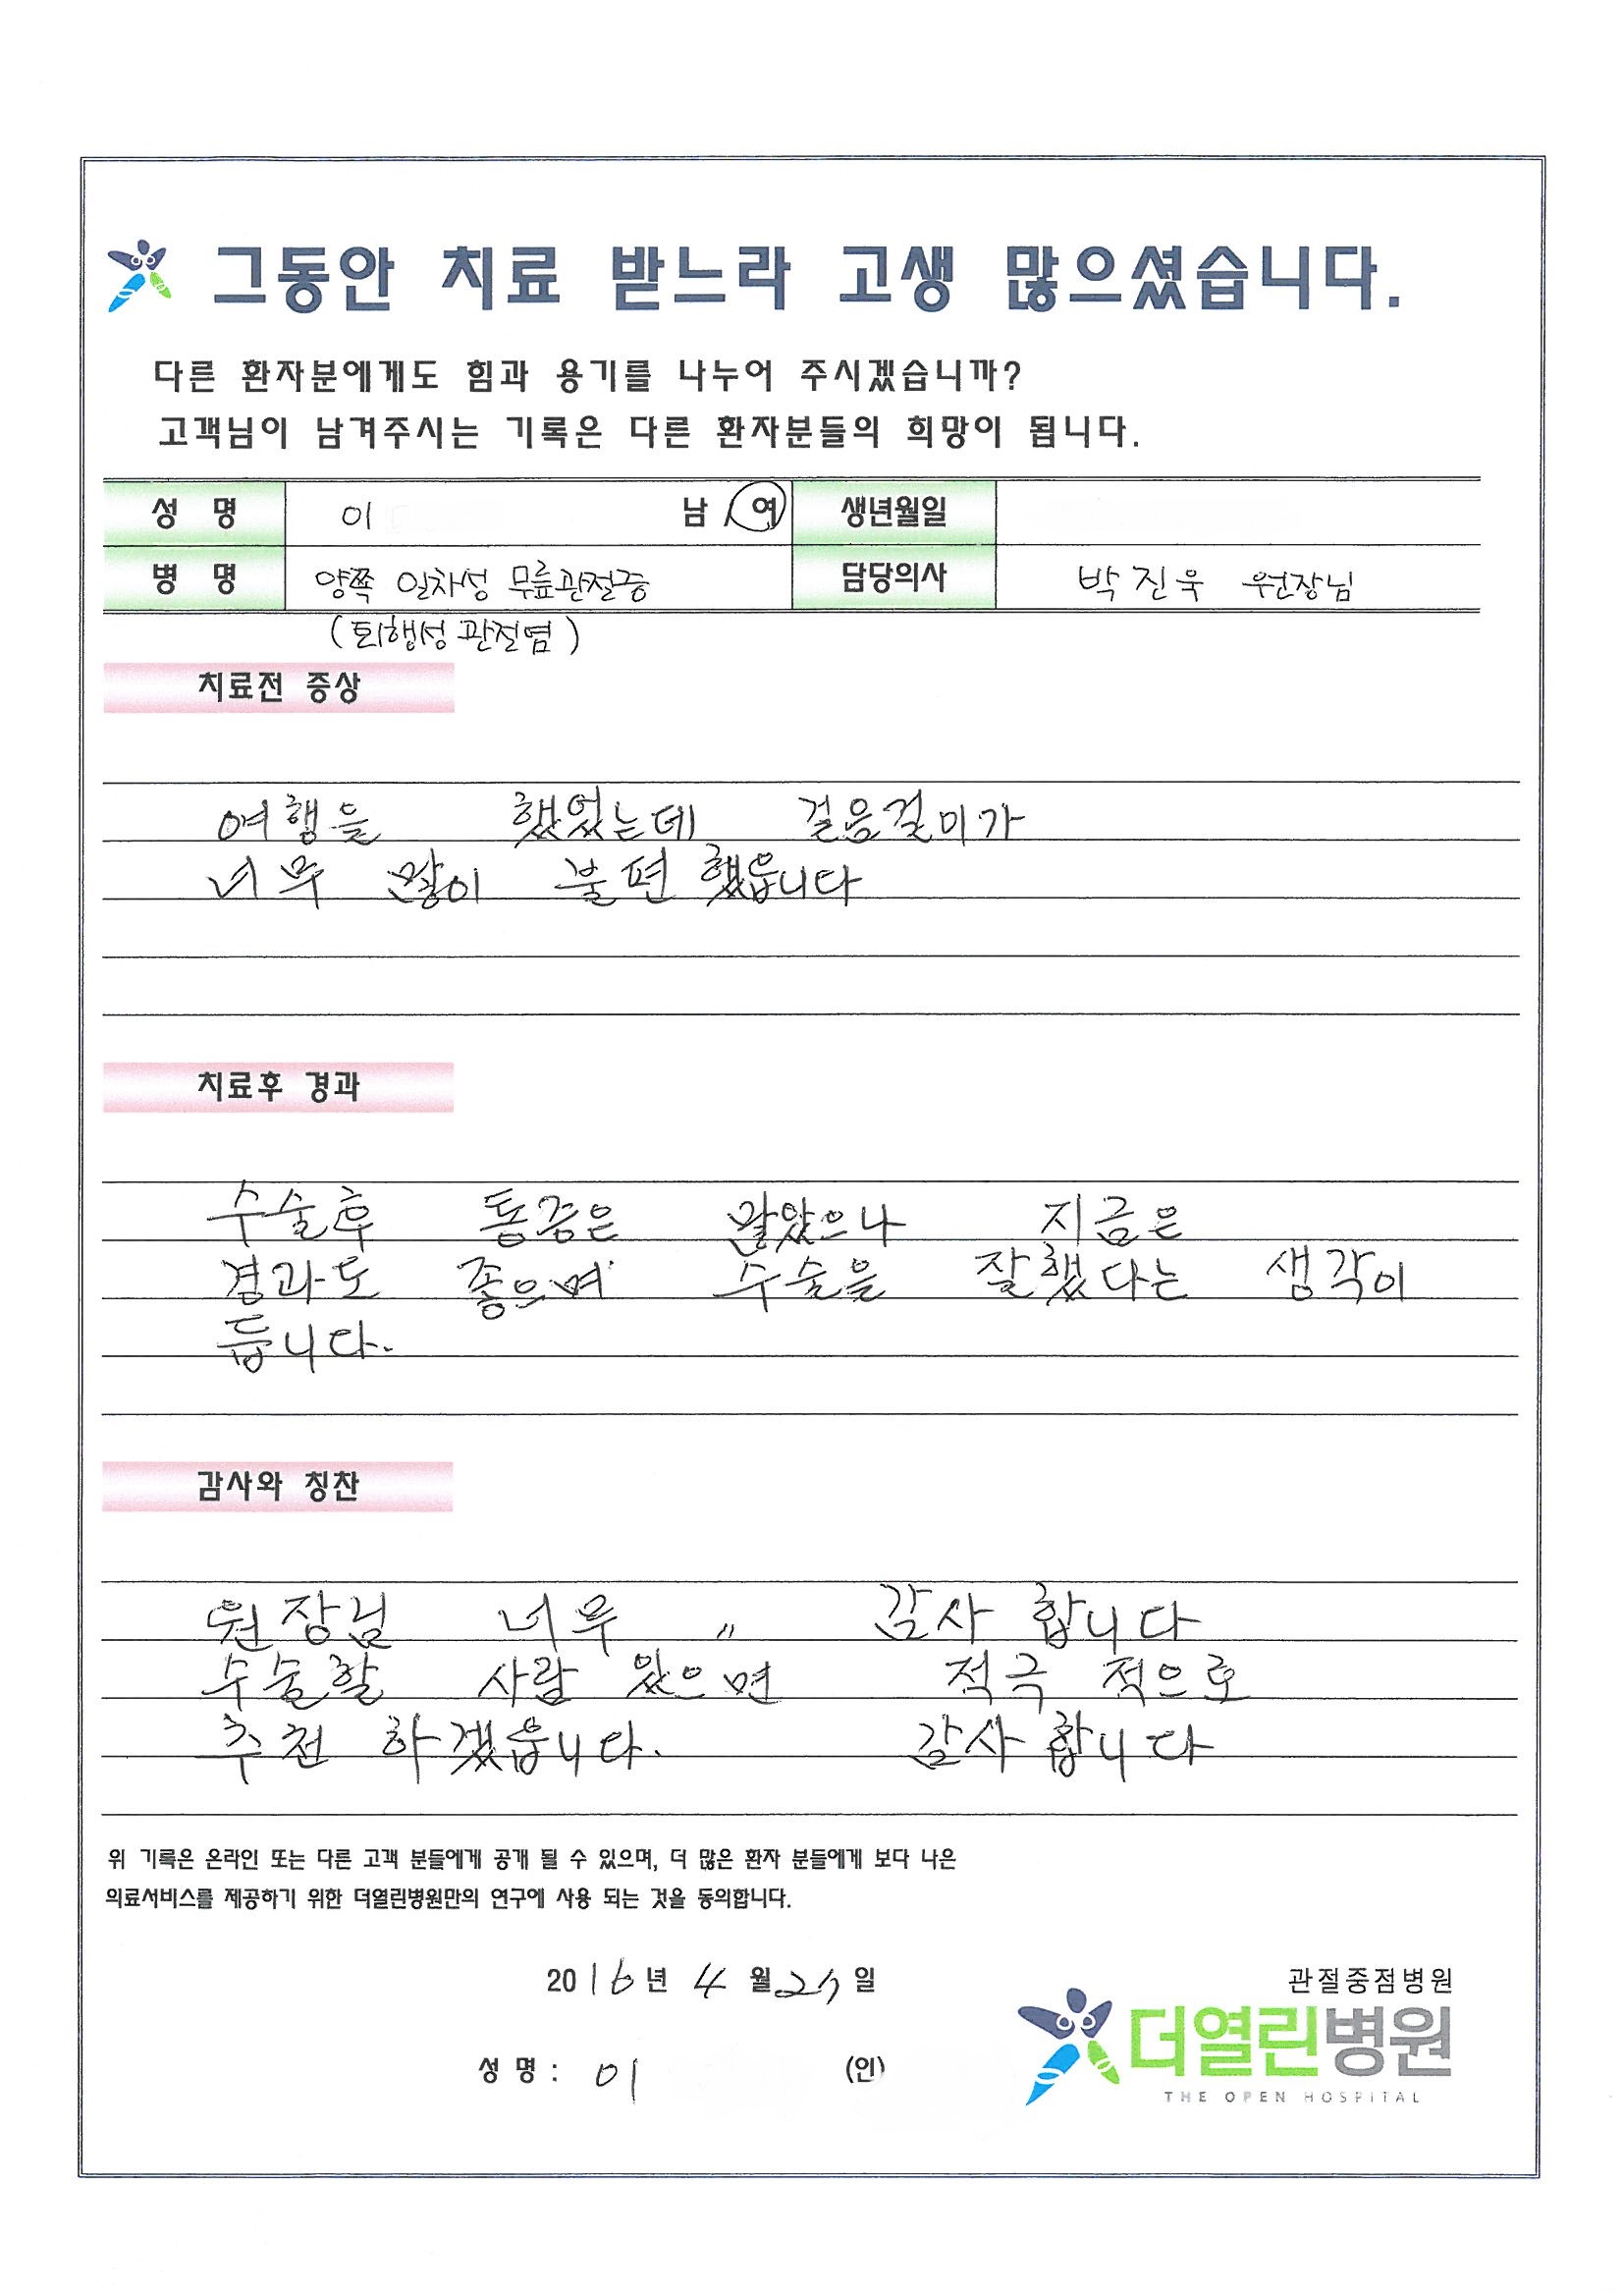 그동안 치료 받느라 고생 많으셨습니다.
다른 환자분에게도 힘과 용기를 나누어 주시겠습니까?
고객님이 남겨주시는 기록은 다른 환자분들의 희망이 됩니다.
성 명 이 남 / 여 생년월일
병 명 양쪽 일차성 무릎관절증 담당의사 박진욱 원장님
(퇴행성 관절염)
치료전 증상
여행을 했었는데 걸음걸이가
너무 많이 불편 했읍니다
치료후 경과
수술후 통증은 많았으나 지금은
경과도 좋으며 수술을 잘했다는 생각이
듭니다.
감사와 칭찬
원장님 너무 〃 감사 합니다
수술할 사람 있으면 적극 적으로
추천 하겠읍니다. 감사 합니다
위 기록은 온라인 또는 다른 고객 분들에게 공개 될 수 있으며, 더 많은 환자 분들에게 보다 나은
의료서비스를 제공하기 위한 더열린병원만의 연구에 사용 되는 것을 동의합니다.
2016년 4월 27일
관절중점병원
더열린병원
THE OPEN HOSPITAL
성 명 : 이 (인)